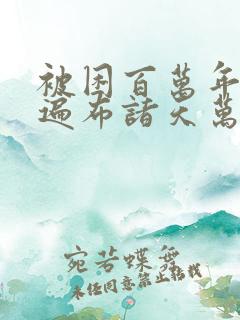 被困百萬年
遍布諸天萬
宛若蝶舞
未经同意禁止转载